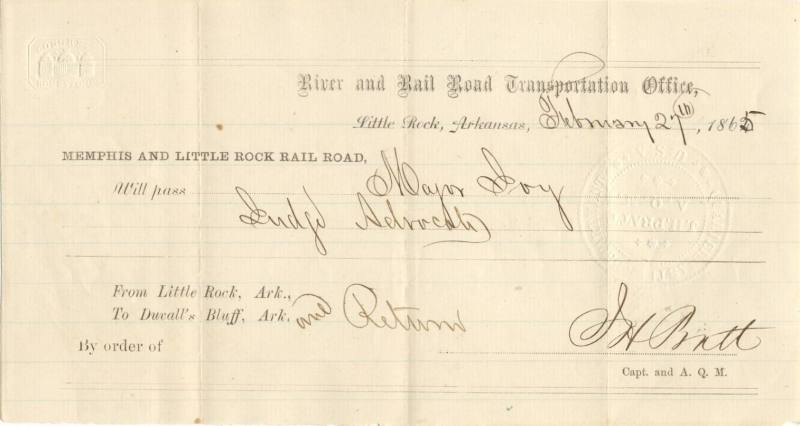 CONGRESS
River and Rail Road Transportation Office,
Little Rock, Arkansas, February 27th, 1865
MEMPHIS AND LITTLE ROCK RAIL ROAD,
Will pass Major Loy
Judge Advocate
From Little Rock, Ark.,
To Duvall's Bluff, Ark. and Return
By order of J H Pratt
Capt. and A. Q. M.